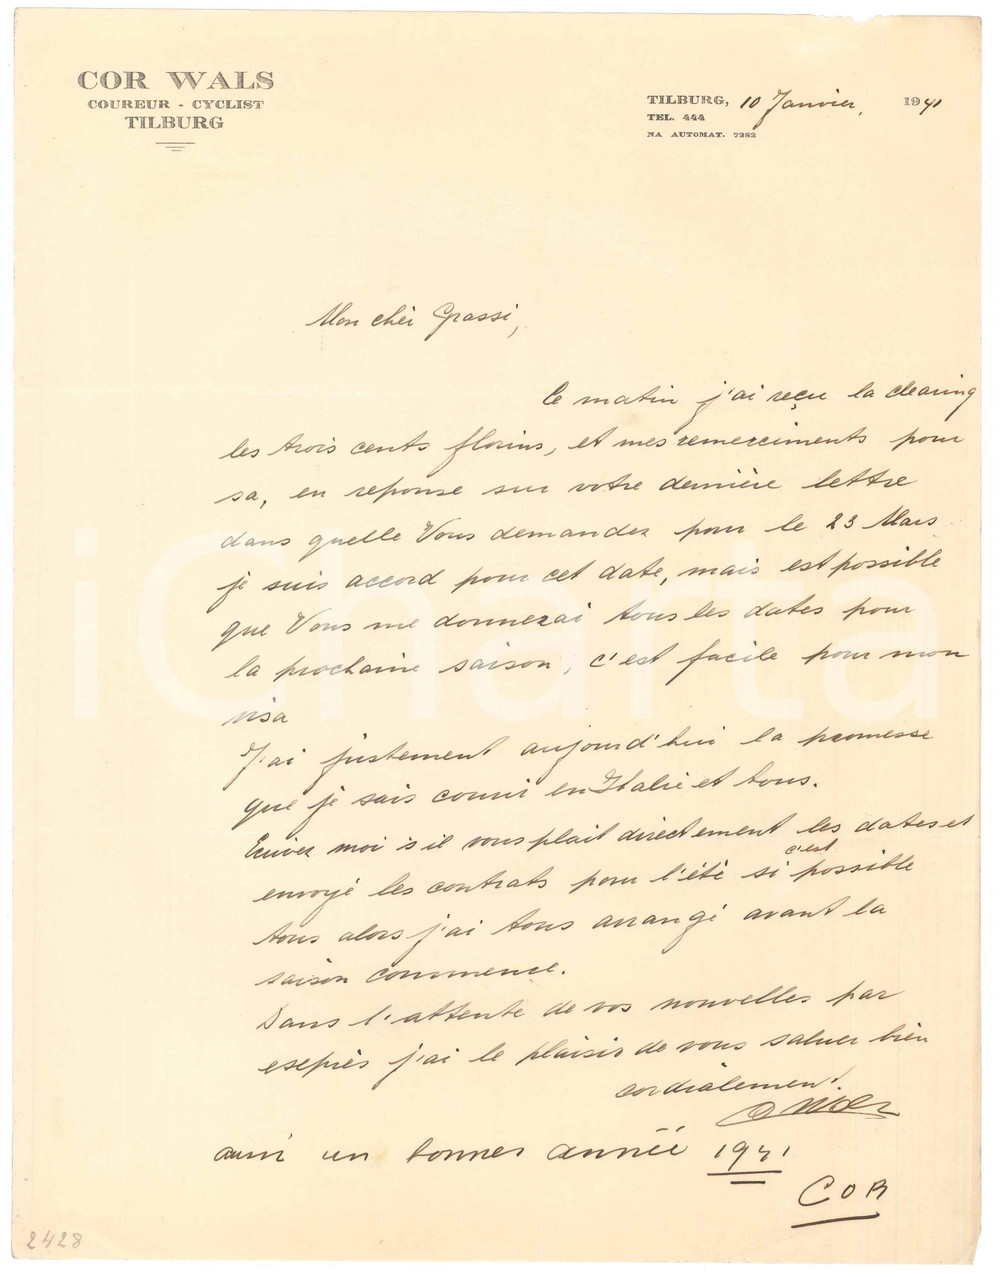 COR WALS
COUREUR - CYCLIST
TILBURG
TILBURG, 10 Janvier, 1941
TEL. 444
NA AUTOMAT. 7282
Mon chèr Grassi,
Ce matin j'ai reçu la clearing
les trois cents florins, et mes remerciments pour
sa, en reponse sur votre dernière lettre
dans quelle Vous demandez pour le 23 Mars
je suis accord pour cet date, mais est possible
que Vous me donnerai tous les dates pour
la prochaine saison, c'est facile pour mon
visa
J'ai justement aujourd'hui la promesse
que je sais courir en Italie et tous.
Ecrivez moi s'il vous plait directement les dates et
envoyé les contrats pour l'été si c'est possible
tous alors j'ai tous arrangé avant la
saison commence.
Dans l'attente de vos nouvelles par
esepriès j'ai le plaisir de vous saluer bièn
cordiàlement.
aussi un bonnes année 1941
COR
2428
iCharta